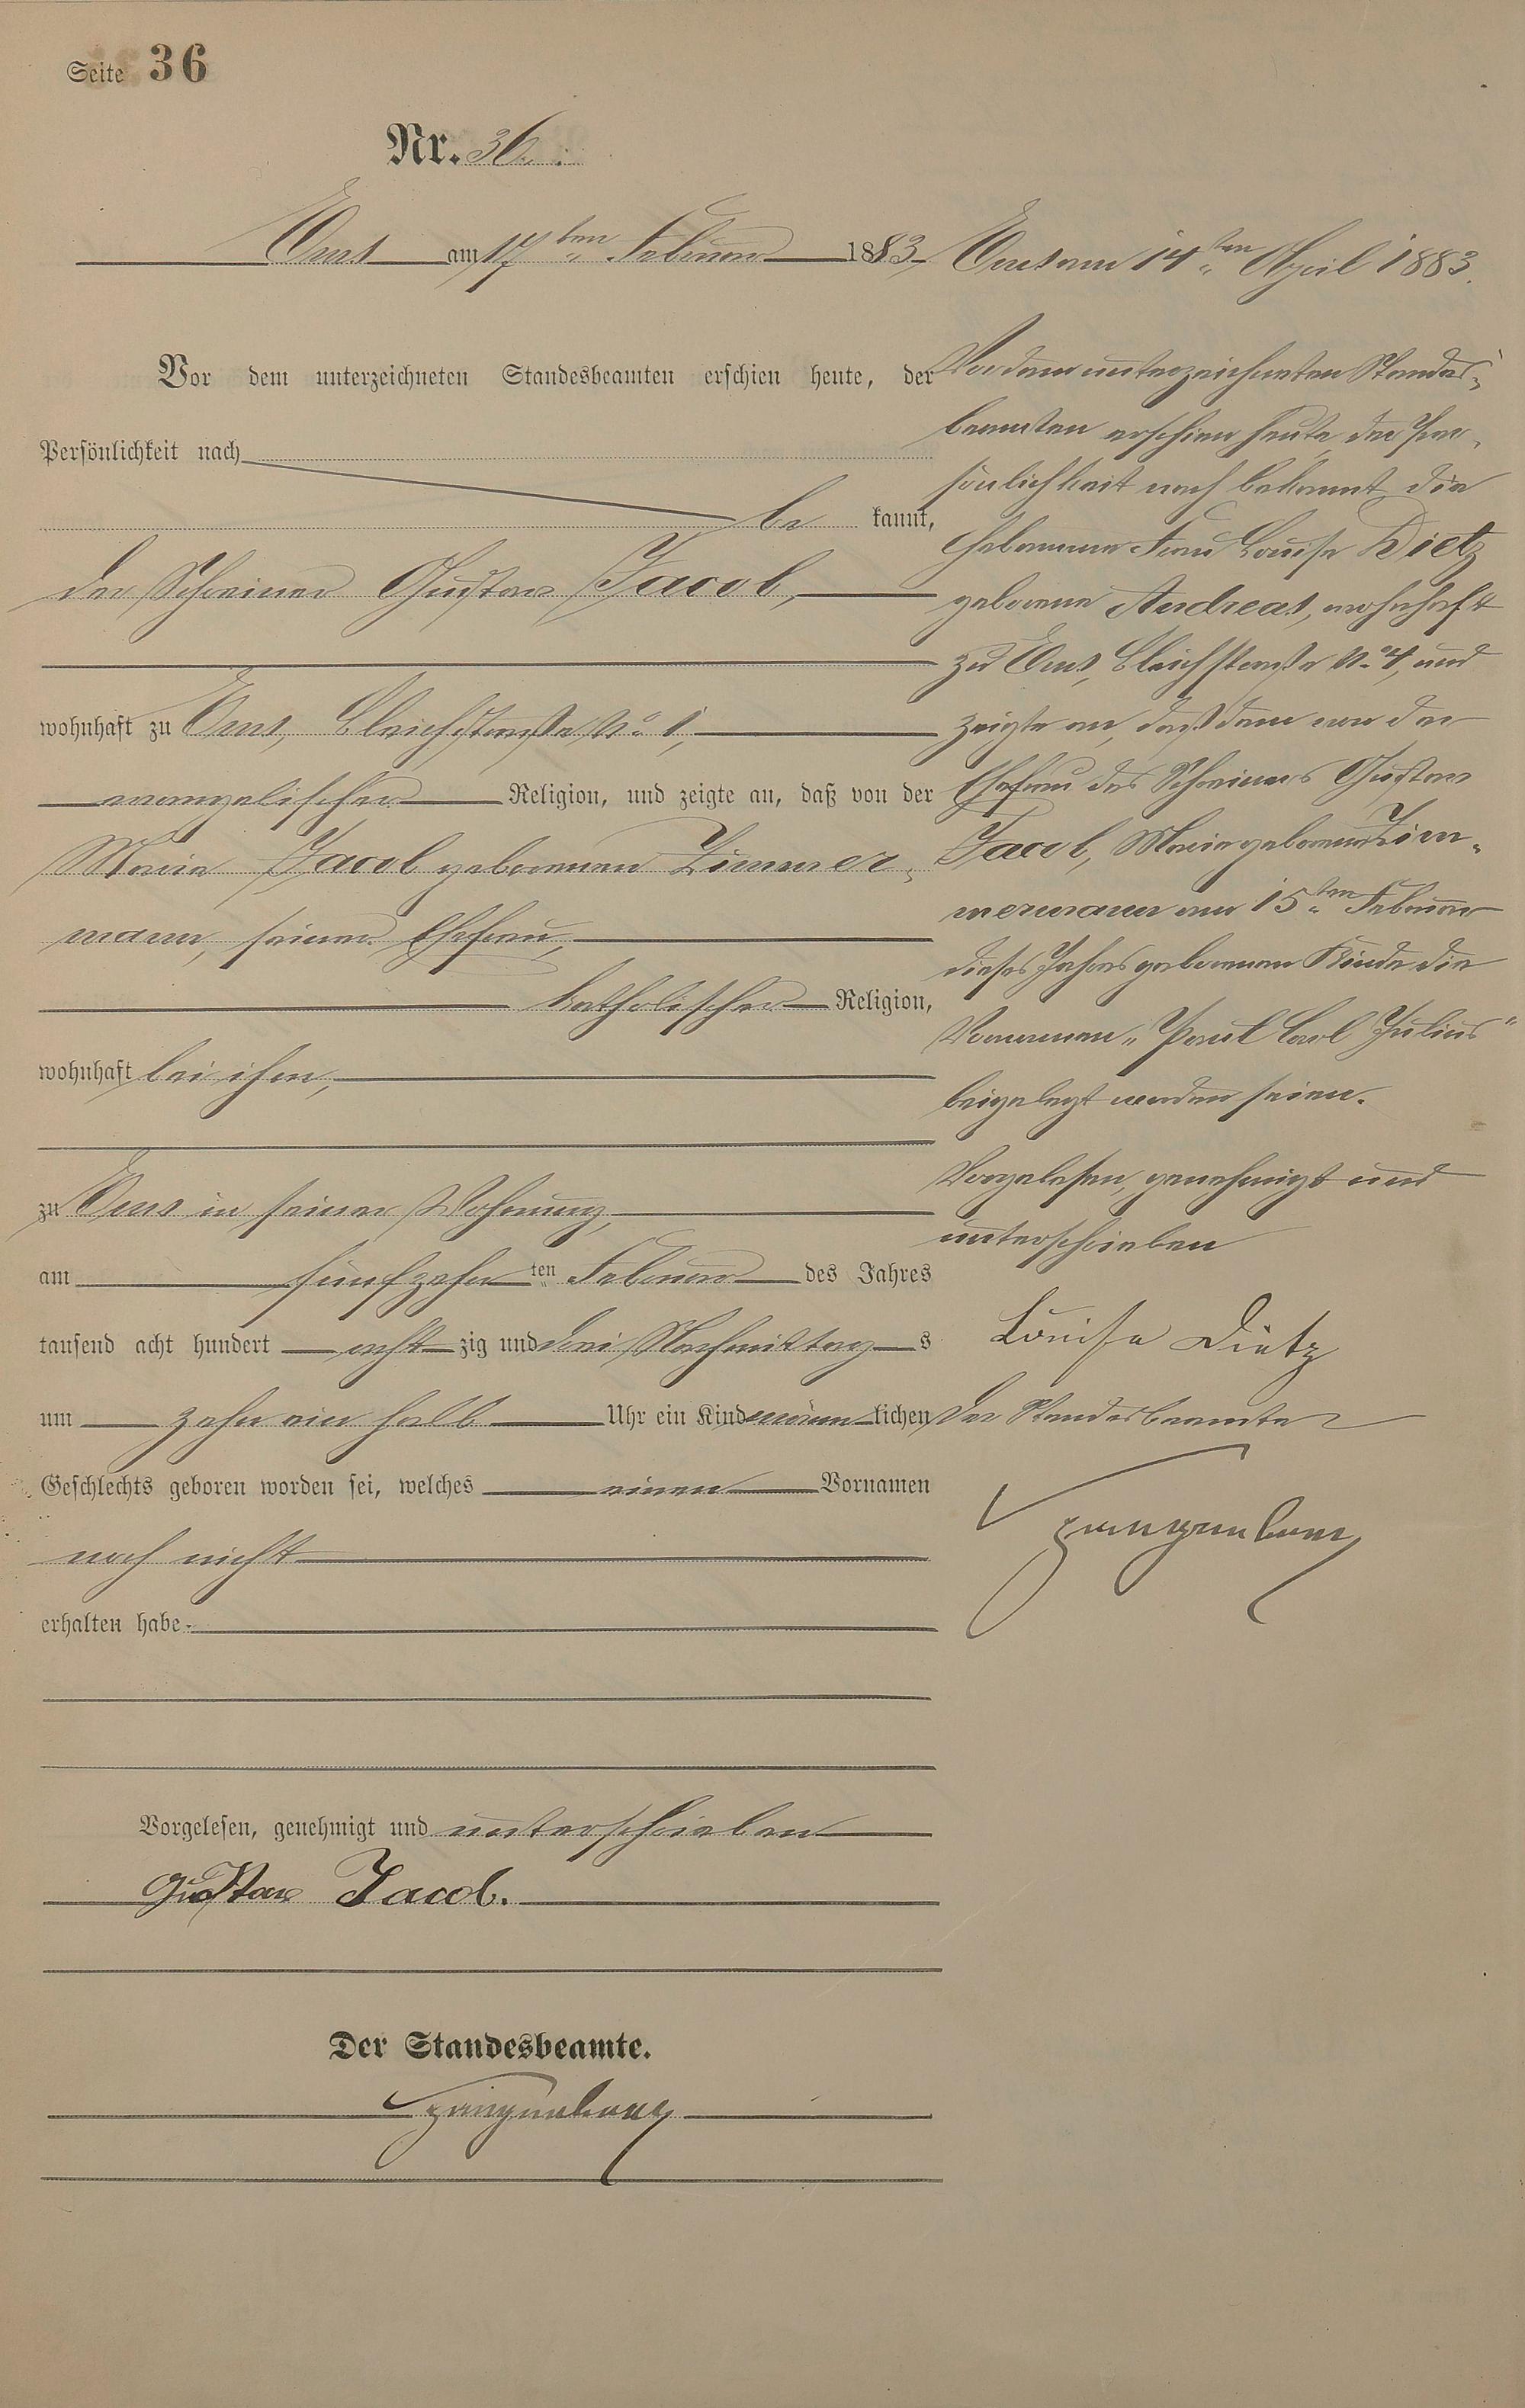 Seite 36
Nr. 36.
Ems am 17ten Februar 1883
Vor dem unterzeichneten Standesbeamten erschien heute, der
Persönlichkeit nach
be kannt,
der Schreiner Gustav Jacob,
wohnhaft zu Ems, Bleichstraße No 1,
evangelischer Religion, und zeigte an, daß von der
Maria Jacob geborenen Zimmer-
mann, seiner Ehefrau,
katholischer Religion,
wohnhaft bei ihm,
zu Ems in seiner Wohnung,
am fünfzehn ten Februar des Jahres
tausend acht hundert acht zig und drei Nachmittag s
um zehn ein halb Uhr ein Kind männ lichen
Geschlechts geboren worden sei, welches einen Vornamen
noch nicht
erhalten habe.
Vorgelesen, genehmigt und unterschrieben
Gustav Jacob.
Der Standesbeamte.
Ems am 14ten April 1883.
Vor dem unterzeichneten Standes-
beamten erschien heute, der Per-
sönlichkeit nach bekannt, die
Hebamme Frau Louise Dietz
geborene Andreas, wohnhaft
zu Ems, Bleichstraße No 4, und
zeigte an, daß dem von der
Ehefrau des Schreiners Gustav
Jacob, Maria geborene Zim-
mermann am 15ten Februar
dieses Jahres geborenen Kinde die
Vornamen „Paul Carl Julius"
beigelegt worden seien.
Vorgelesen, genehmigt und
unterschrieben
Louise Dietz
Der Standesbeamte